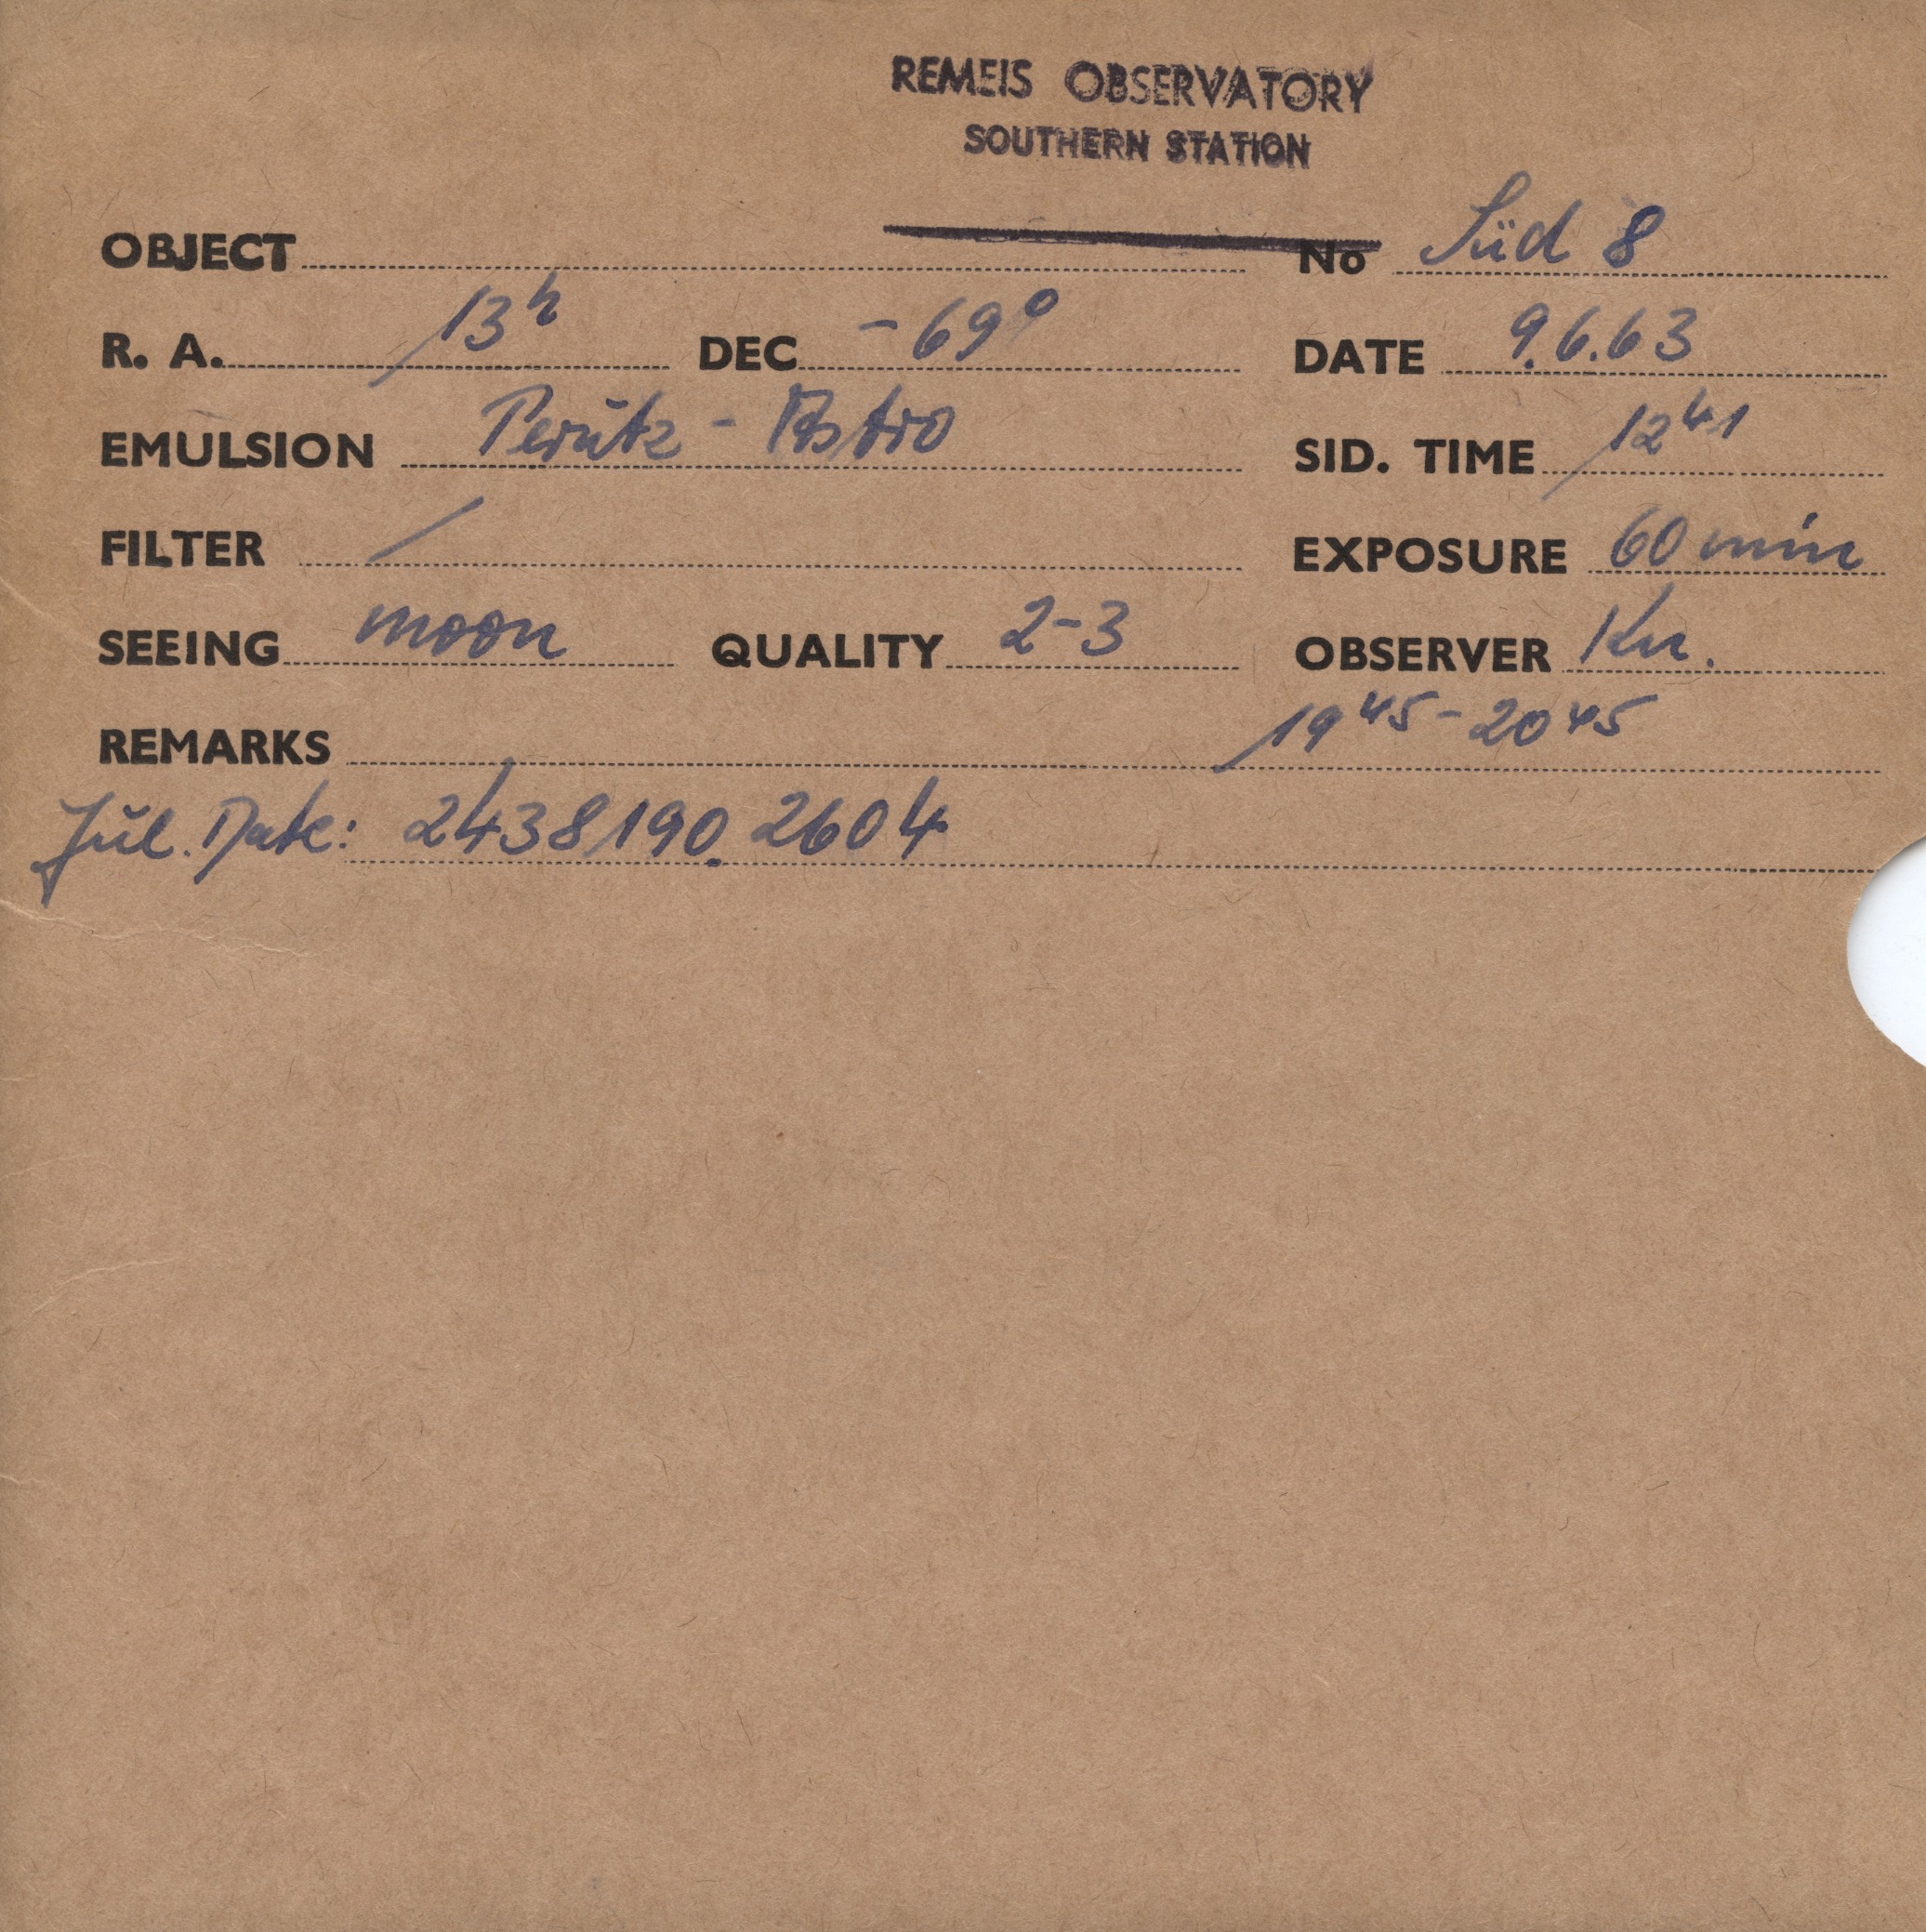 REMEIS OBSERVATORY
SOUTHERN STATION
OBJECT No Süd 8
R. A. 13h DEC -69° DATE 9.6.63
EMULSION Perutz - Astro SID. TIME 12 41
FILTER / EXPOSURE 60 min
SEEING moon QUALITY 2-3 OBSERVER Kn.
REMARKS 19 45 - 20 45
Jul. Date: 2438190.2604